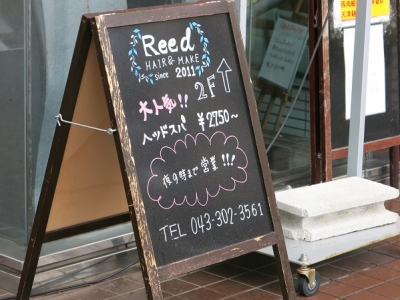 Reed
HAIR & MAKE
since 2011
2F↑
大人気!!
ヘッドスパ ¥2,750～
夜9時まで営業!!!
TEL 043-302-3561